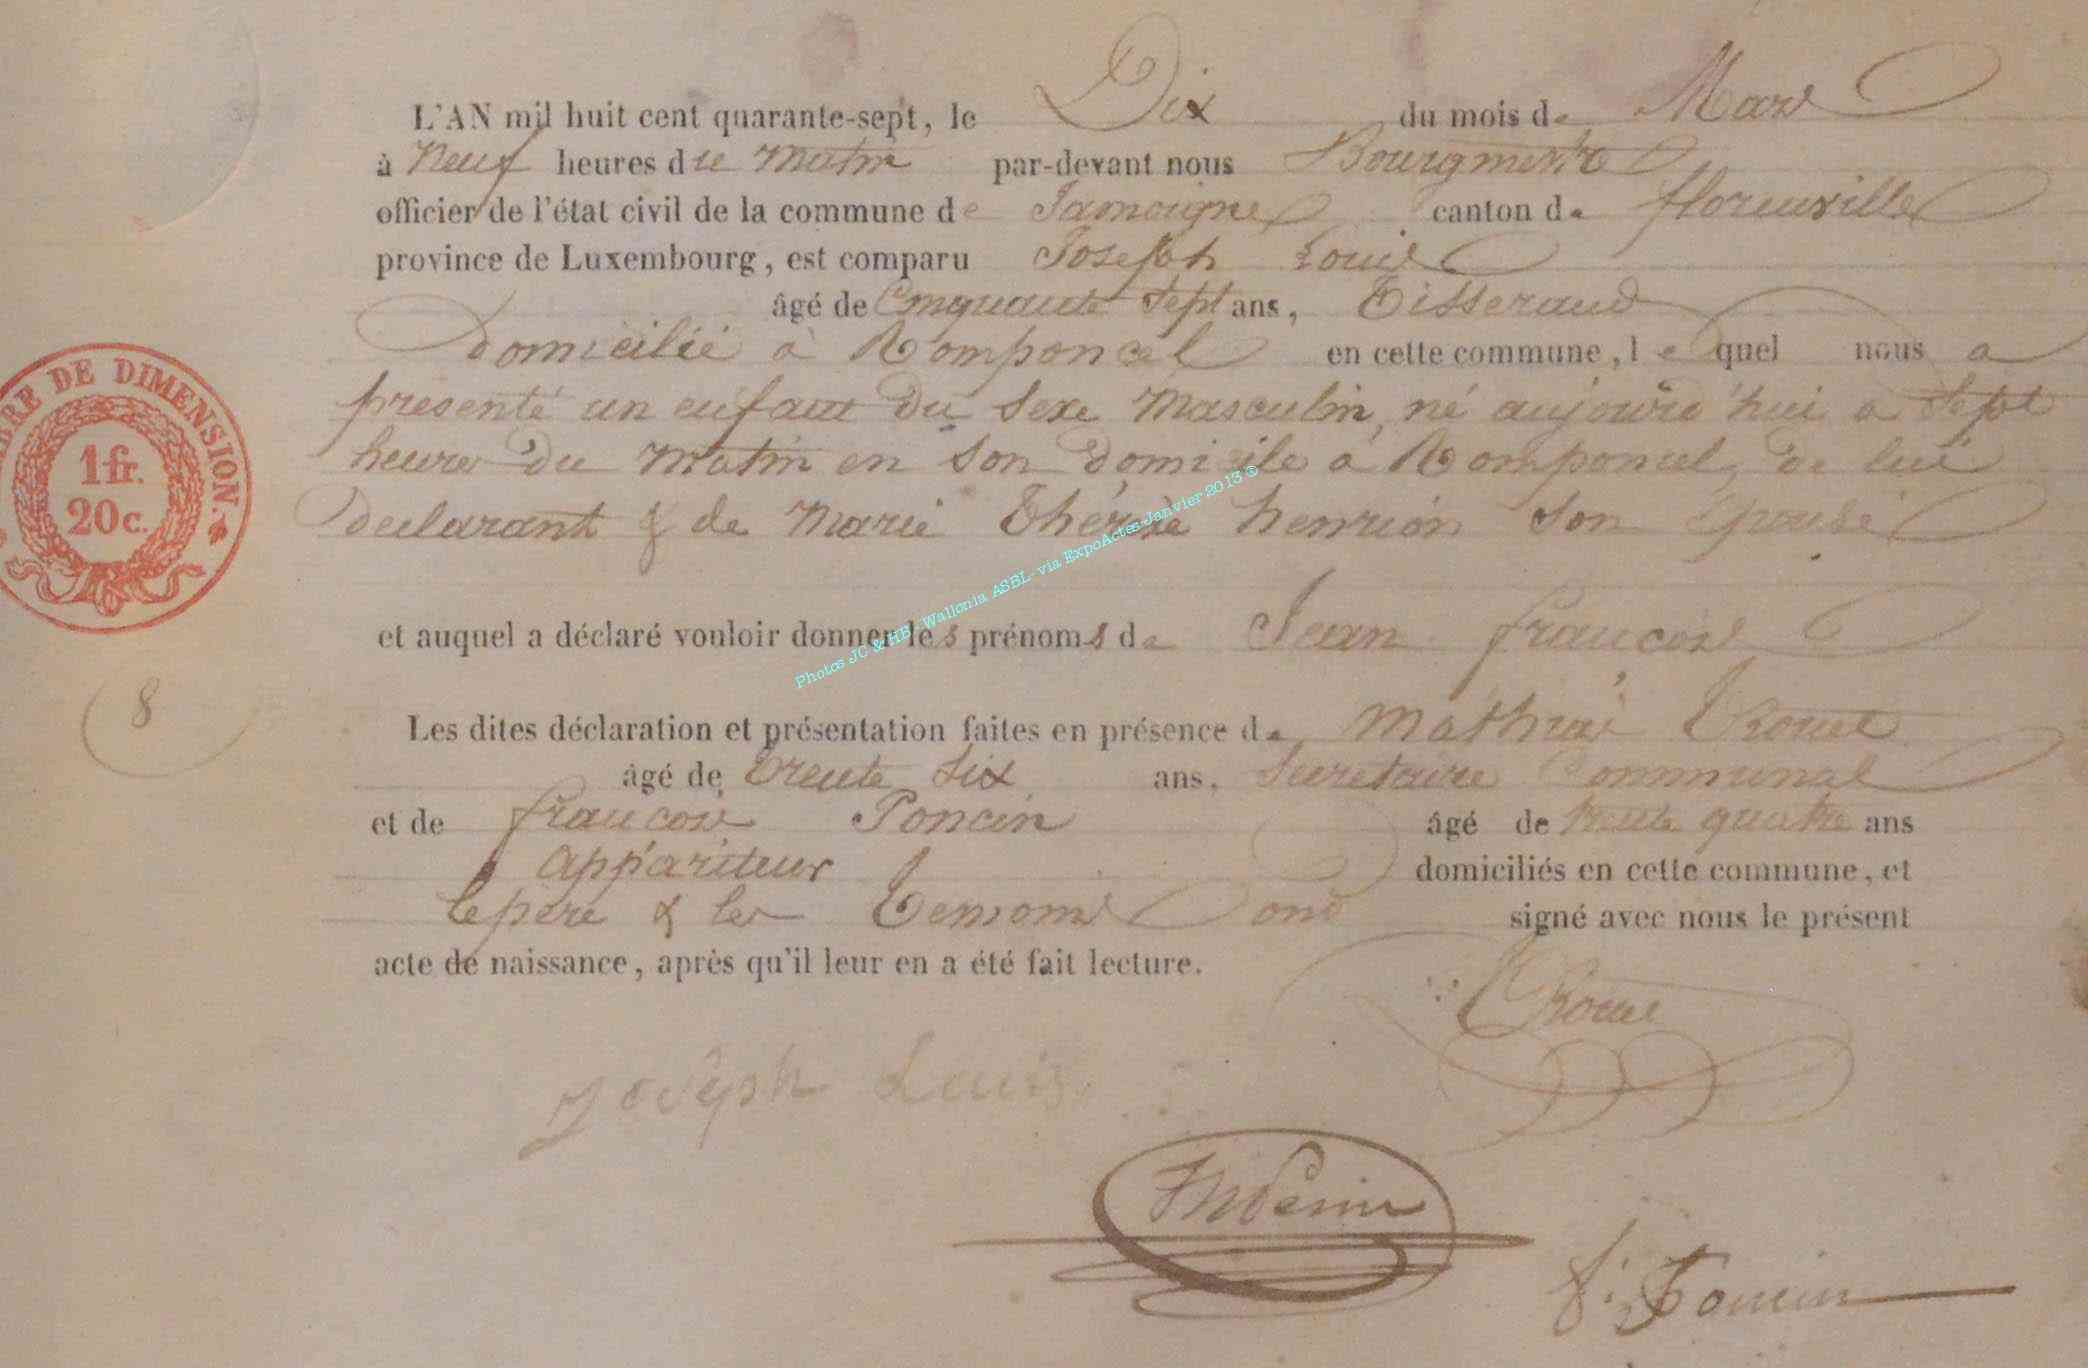 L'AN mil huit cent quarante-sept, le Dix du mois de Mars
à Neuf heures du Matin par-devant nous Bourgmestre
officier de l'état civil de la commune de Jamoigne canton de florenville
province de Luxembourg, est comparu Joseph Louis
âgé de Cinquante Sept ans, Tisserand
domicilié à Romponcel en cette commune, lequel nous a
présenté un enfant du Sexe Masculin, né aujourd'hui a Sept
heures du Matin en Son domicile à Romponcel, de lui
declarant & de Marie Thérèse henrion Son Epouse
et auquel a déclaré vouloir donner les prénoms de Jean francois
Les dites déclaration et présentation faites en présence de Mathieu
âgé de trente Six ans, Secretaire Communal
et de francois Poncin âgé de trente quatre ans
appariteur domiciliés en cette commune, et
le père & les Temoins ont signé avec nous le présent
acte de naissance, après qu'il leur en a été fait lecture.
Joseph Louis
f. Poncin
TIMBRE DE DIMENSION.
1 fr.
20 c.
8
Photos JC & HB Wallonia ASBL- via ExpoActes-Janvier 2013 ®